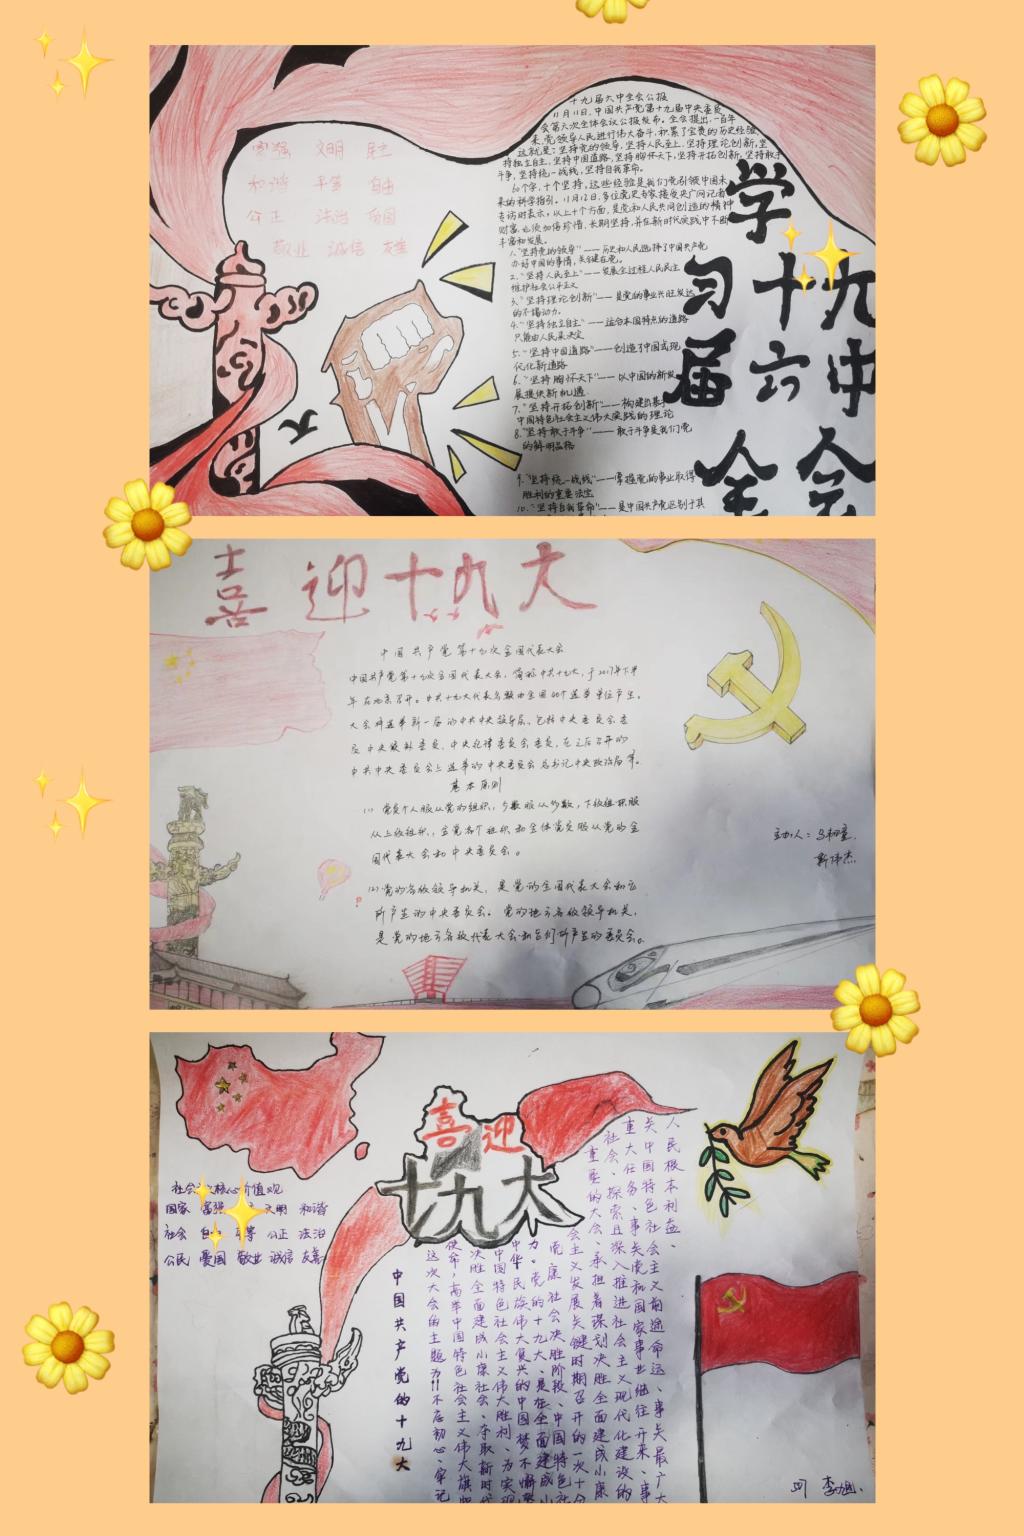 富强 文明 民主
和谐 平等 自由
公正 法治 爱国
敬业 诚信 友善
十九届六中全会公报
11月11日,中国共产党第十九届中央委员
会第六次全体会议公报发布。全会提出,一百年
来,党领导人民进行伟大奋斗,积累了宝贵的历史经验,
这就是:坚持党的领导,坚持人民至上,坚持理论创新,坚
持独立自主,坚持中国道路,坚持胸怀天下,坚持开拓创新,坚持敢于
斗争,坚持统一战线,坚持自我革命。
60个字,十个坚持,这些经验是我们党引领中国未
来的科学指引。11月12日,多位党史专家接受央广网记者
专访时表示,以上十个方面,是党和人民共同创造的精神
财富,必须加倍珍惜、长期坚持,并在新时代实践中不断
丰富和发展。
1."坚持党的领导"——历史和人民选择了中国共产党
办好中国的事情,关键在党。
2."坚持人民至上"——发展全过程人民民主
维护社会公平正义
3."坚持理论创新"——是党的事业兴旺发达
的不竭动力。
4."坚持独立自主"——适合本国特点的道路
只能由人民来决定
5."坚持中国道路"——创造了中国式现
代化新道路
6."坚持胸怀天下"——以中国的新发
展提供新机遇
7."坚持开拓创新"——构建出基于
中国特色社会主义伟大实践的理论
8."坚持敢于斗争"——敢于斗争是我们党
的鲜明品格
9."坚持统一战线"——掌握党的事业取得
胜利的重要法宝
10."坚持自我革命"——是中国共产党区别于其
学
习十九
届六中
全会
喜迎十九大
中国共产党第十九次全国代表大会
中国共产党第十九次全国代表大会,简称中共十九大,于2017年下半
年在北京召开。中共十九大代表名额由全国40个选举单位产生。
大会将选举新一届的中共中央领导层,包括中央委员会委
员中央候补委员、中央纪律委员会委员,在之后召开的
中共中央委员会上选举的中央委员会总书记中央政治局等。
基本原则
(1) 党员个人服从党的组织,少数服从多数,下级组织服
从上级组织,全党各个组织和全体党员服从党的全
国代表大会和中央委员会。
(2)党的各级领导机关,是党的全国代表大会和它
所产生的中央委员会。党的地方各级领导机关,
是党的地方各级代表大会和它们所产生的委员会。
主办人:
靳伟杰
喜迎
十九大
社会核心价值观
国家 富强 文明 和谐
社会 自 等 公正 法治
公民 爱国 敬业 诚信 友善
人民根本利益、
关中国特色社会主义前途命运、事关最广大
重大任务、事关党和国家事业继往开来、事
社会、探索且深入推进社会主义现代化建设的
重要的大会、承担着谋划决胜全面建成小康
会主义发展关键时期召开的一次十分
党康社会决胜阶段、中国特色社
力。党的十九大、是在全面建成小
中华民族伟大复兴的中国梦不懈
中国特色社会主义伟大胜利、为实现
决胜全面建成小康社会、夺取新时代
使命,高举中国特色社会主义伟大旗帜
这次大会的主题为!!不忘初心、牢记
中国共产党的十九大